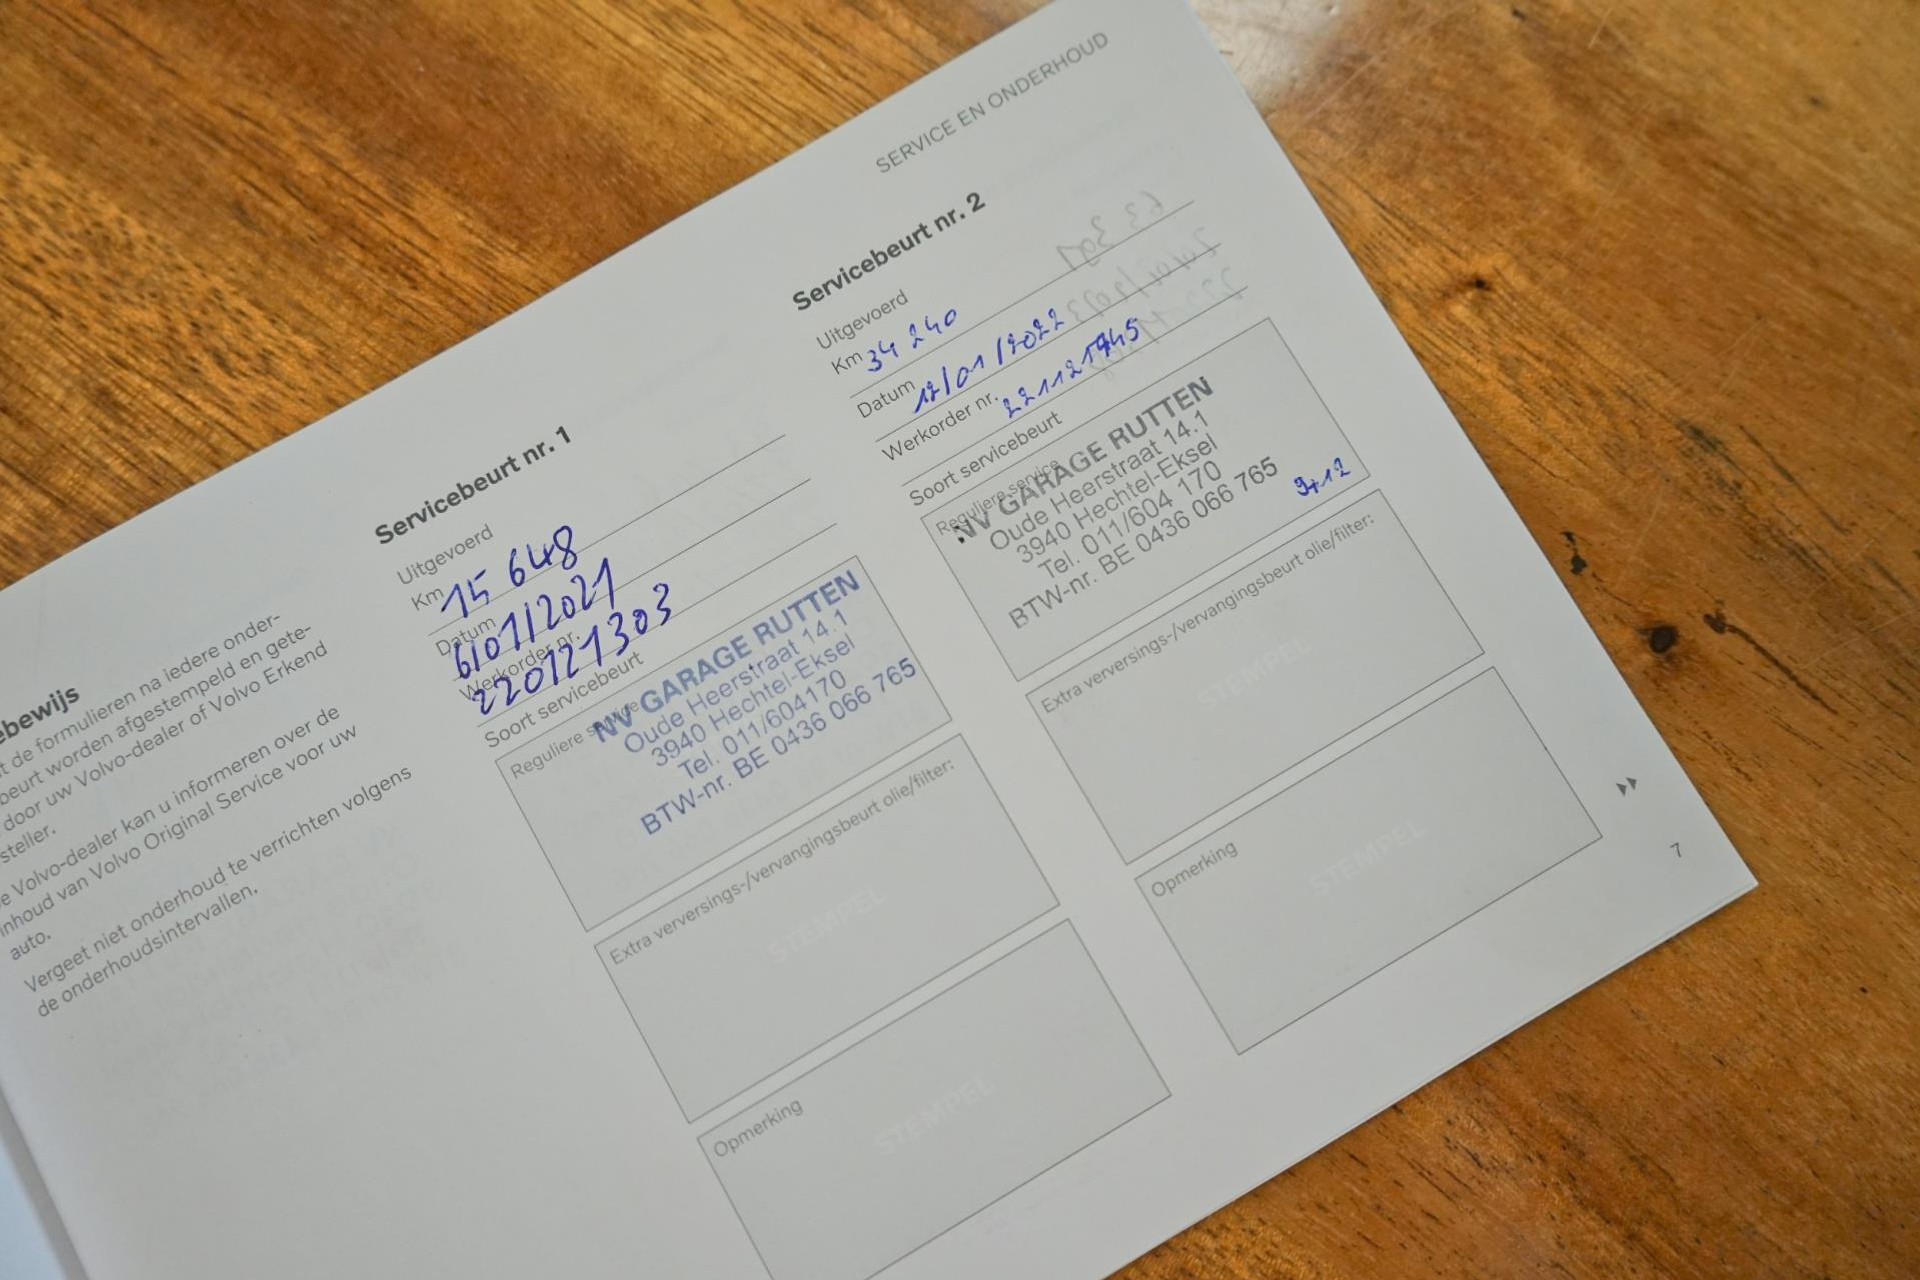 SERVICE EN ONDERHOUD
ebewijs
t de formulieren na iedere onder-
beurt worden afgestempeld en gete-
door uw Volvo-dealer of Volvo Erkend
steller.
e Volvo-dealer kan u informeren over de
inhoud van Volvo Original Service voor uw
auto.
Vergeet niet onderhoud te verrichten volgens
de onderhoudsintervallen.
Servicebeurt nr. 1
Uitgevoerd
Km 15 648
Datum 6/01/2021
Werkorder nr. 220121303
Soort servicebeurt
Reguliere service
NV GARAGE RUTTEN
Oude Heerstraat 14.1
3940 Hechtel-Eksel
Tel. 011/604170
BTW-nr. BE 0436 066 765
Extra verversings-/vervangingsbeurt olie/filter:
STEMPEL
Opmerking
STEMPEL
Servicebeurt nr. 2
Uitgevoerd
Km 34 240
Datum 12/01/2022
Werkorder nr.
Soort servicebeurt
Reguliere service
NV GARAGE RUTTEN
Oude Heerstraat 14.1
3940 Hechtel-Eksel
Tel. 011/604 170
BTW-nr. BE 0436 066 765
Extra verversings-/vervangingsbeurt olie/filter:
STEMPEL
Opmerking
STEMPEL
7